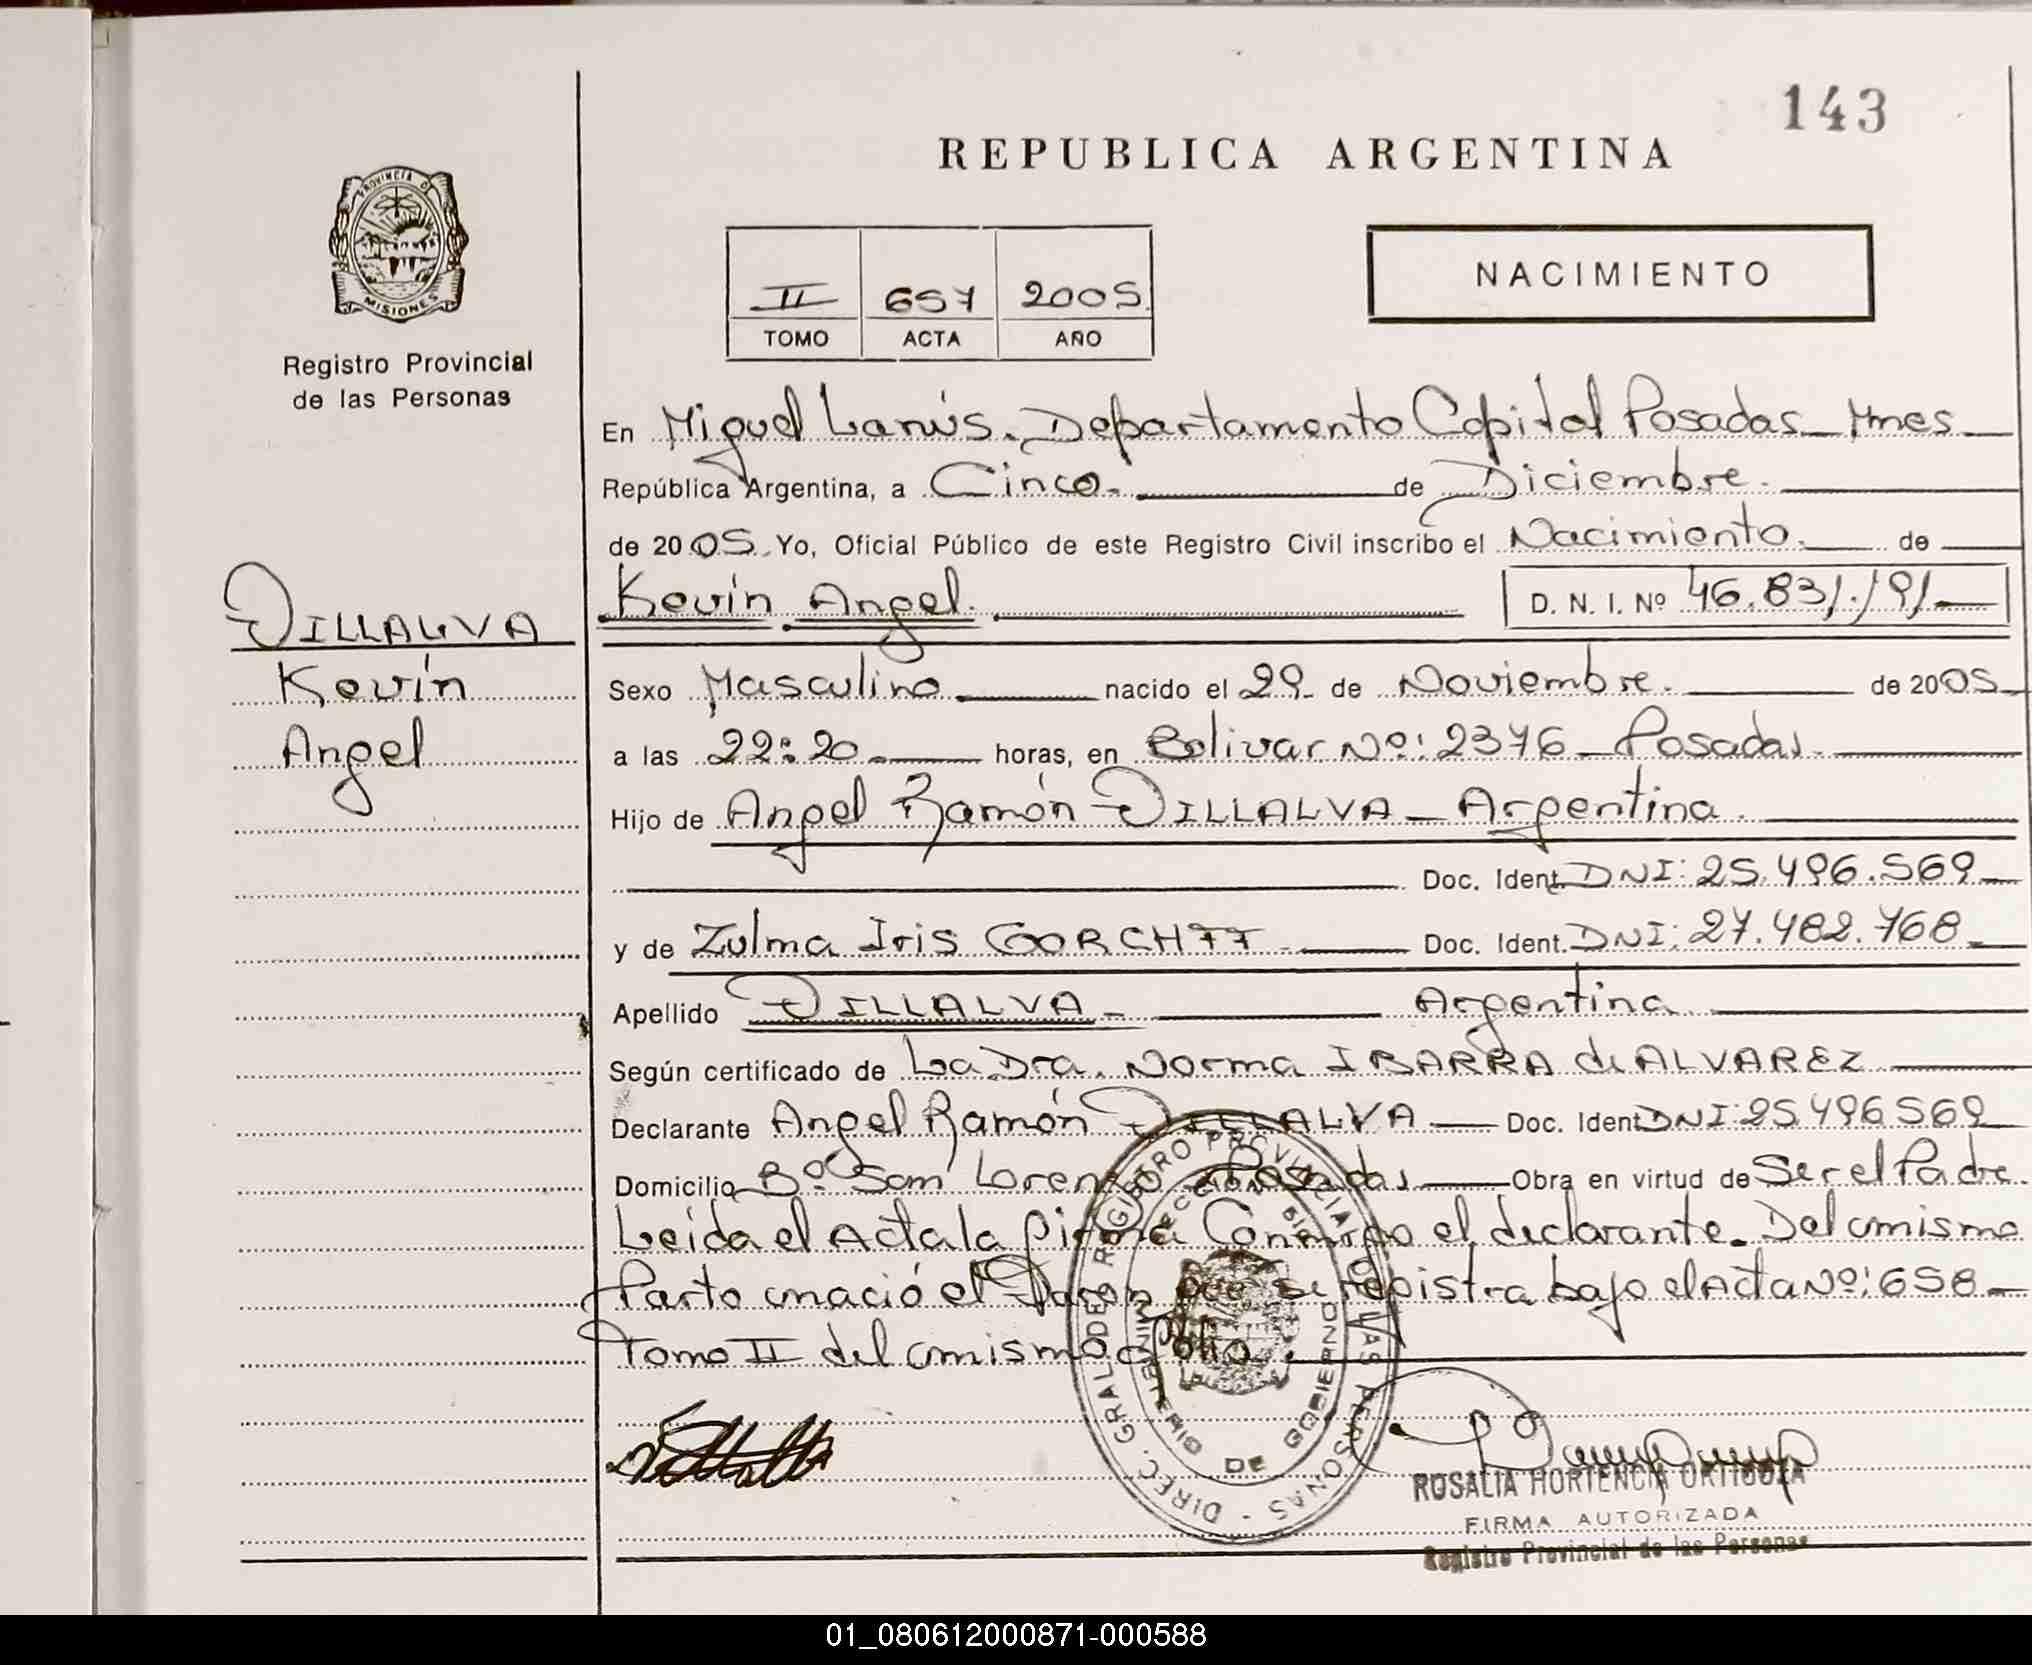 143
REPUBLICA ARGENTINA
PROVINCIA DE
MISIONES
Registro Provincial
de las Personas
II 657 2005
TOMO ACTA AÑO
NACIMIENTO
En Miguel Lanús. Departamento Capital Posadas Mnes
República Argentina, a Cinco. de Diciembre.
de 2005 Yo, Oficial Público de este Registro Civil inscribo el Nacimiento. de
VILLALVA
Kevin
Angel
Kevin Angel. D. N. I. Nº 46.831.191
Sexo Masculino nacido el 29 de Noviembre. de 2005
a las 22:20 horas, en Bolivar Nº: 2376 Posadas.
Hijo de Angel Ramón VILLALVA Argentina.
Doc. Ident. DNI: 25.496.569
y de Zulma Iris GORCHTT Doc. Ident. DNI: 27.482.768
Apellido VILLALVA Argentina
Según certificado de La Dra. Norma IBARRA de ALVAREZ
Declarante Angel Ramón VILLALVA Doc. Ident DNI: 25.496.569
Domicilio Bº San Lorenzo Posadas Obra en virtud de Ser el Padre.
Leída el Acta la Firma Conmigo el declarante. Del mismo
Parto nació el Varon que se registra bajo el Acta Nº: 658
Tomo II del mismo folio.
DIREC. GRAL. DEL REGISTRO PROVINCIAL DE LAS PERSONAS
MINISTERIO DE GOBIERNO
ROSALIA HORTENCIA ORTIGOZA
FIRMA AUTORIZADA
Registro Provincial de las Personas
01_080612000871-000588